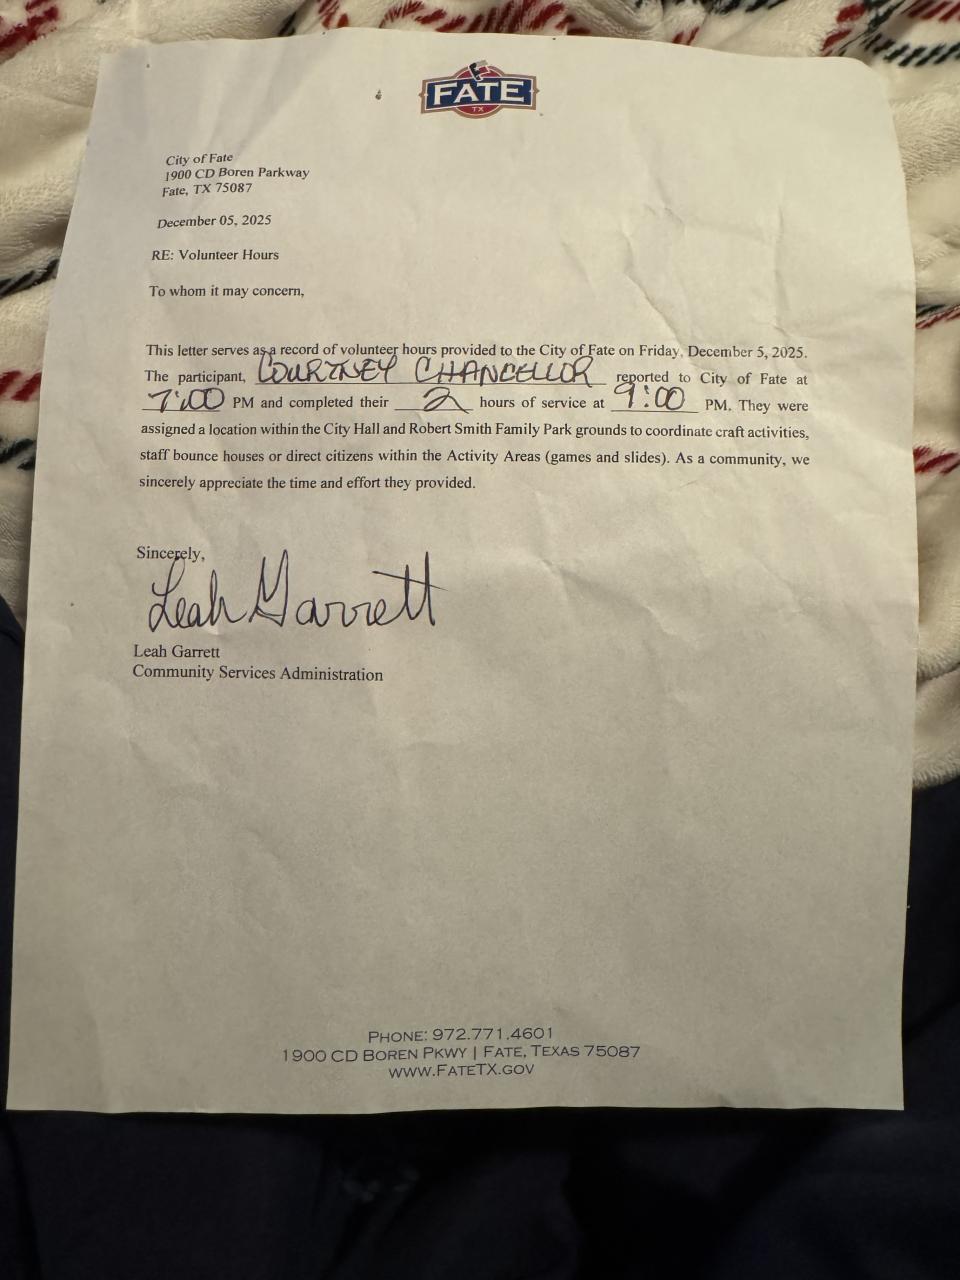 FATE
TX
City of Fate
1900 CD Boren Parkway
Fate, TX 75087
December 05, 2025
RE: Volunteer Hours
To whom it may concern,
This letter serves as a record of volunteer hours provided to the City of Fate on Friday, December 5, 2025.
The participant, COURTNEY CHANCELLOR reported to City of Fate at
7:00 PM and completed their 2 hours of service at 9:00 PM. They were
assigned a location within the City Hall and Robert Smith Family Park grounds to coordinate craft activities,
staff bounce houses or direct citizens within the Activity Areas (games and slides). As a community, we
sincerely appreciate the time and effort they provided.
Sincerely,
Leah Garrett
Leah Garrett
Community Services Administration
PHONE: 972.771.4601
1900 CD BOREN PKWY | FATE, TEXAS 75087
WWW.FATETX.GOV